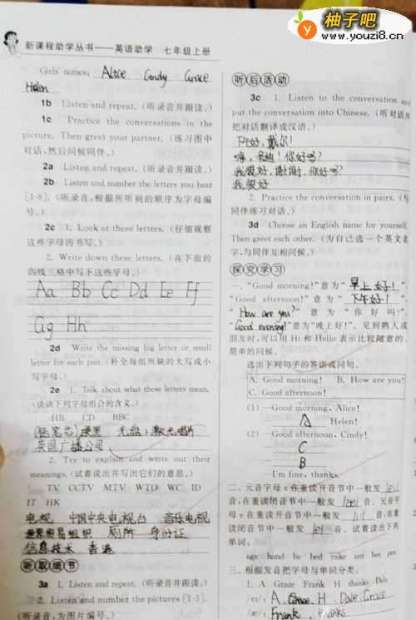 柚子吧
www.youzi8.cn
新课程助学丛书——英语助学 七年级上册
Girls' names: Alice Cindy Grace
Helen
1b Listen and repeat.（听录音并跟读。）
1c Practice the conversations in the
picture. Then greet your partner.（练习图中
对话,然后问候同伴。）
2a Listen and repeat.（听录音并跟读。）
2b Listen and number the letters you hear
[1-8].（听录音,根据所听到的顺序为字母编
号。）
2c 1. Look at these letters.（仔细观察
这些字母的书写。）
2. Write down these letters.（在下面的
四线三格中写下这些字母。）
Aa Bb Cc Dd Ee Ff
Gg Hh
2d Write the missing big letter or small
letter for each pair.（补全每组所缺的大写或小
写字母。）
2e 1. Talk about what these letters mean.
（谈谈下列字母组合的含义。）
HB CD BBC
英国广播公司
2. Try to explain and write out their
meanings.（试着说出并写出它们的意思。）
TV CCTV MTV WTO WC ID
IT HK
电视 中国中央电视台 音乐电视
世界贸易组织 厕所 身份证
信息技术 香港
听取细节
3a 1. Listen and repeat.（听录音并跟读。）
2. Listen and number the pictures [1-3].
（听录音,为图片编号。）
听后活动
3c 1. Listen to the conversation and
put the conversation into Chinese.（听对话并
把对话翻译成汉语。）
你好,戴尔!
嗨, 你好吗?
我很好,谢谢,你好吗?
我很好
2. Practice the conversation in pairs.（与
同伴练习对话。）
3d Choose an English name for yourself.
Then greet each other.（为自己选一个英文名
字,与同伴互相问候。）
探究学习
一、"Good morning!"意为"早上好!"
"Good afternoon!"意为"下午好!"
"How are you?"意为"你好吗?"
意为"晚上好!"。见到熟人或
朋友时,可以用Hi和Hello表示比较随意的、
简单的问候。
选出下列句子的答语或问句。
A. Good morning! B. How are you?
C. Good afternoon!
(1)—Good morning, Alice!
— A Helen!
(2)—Good afternoon, Cindy!
— C
— B
—I'm fine, thanks.
二、元音字母a在重读开音节中一般发
音,在重读闭音节中一般发 音。元音字
母e在重读开音节中一般发 音,在重
读闭音节中一般发 音。试着读出下列
单词。
age hand he bed take met let pen
三、根据发音把字母与单词分类。
1. A Grace Frank H thanks Dale
A, Grace, H, Dale
Frank, thanks